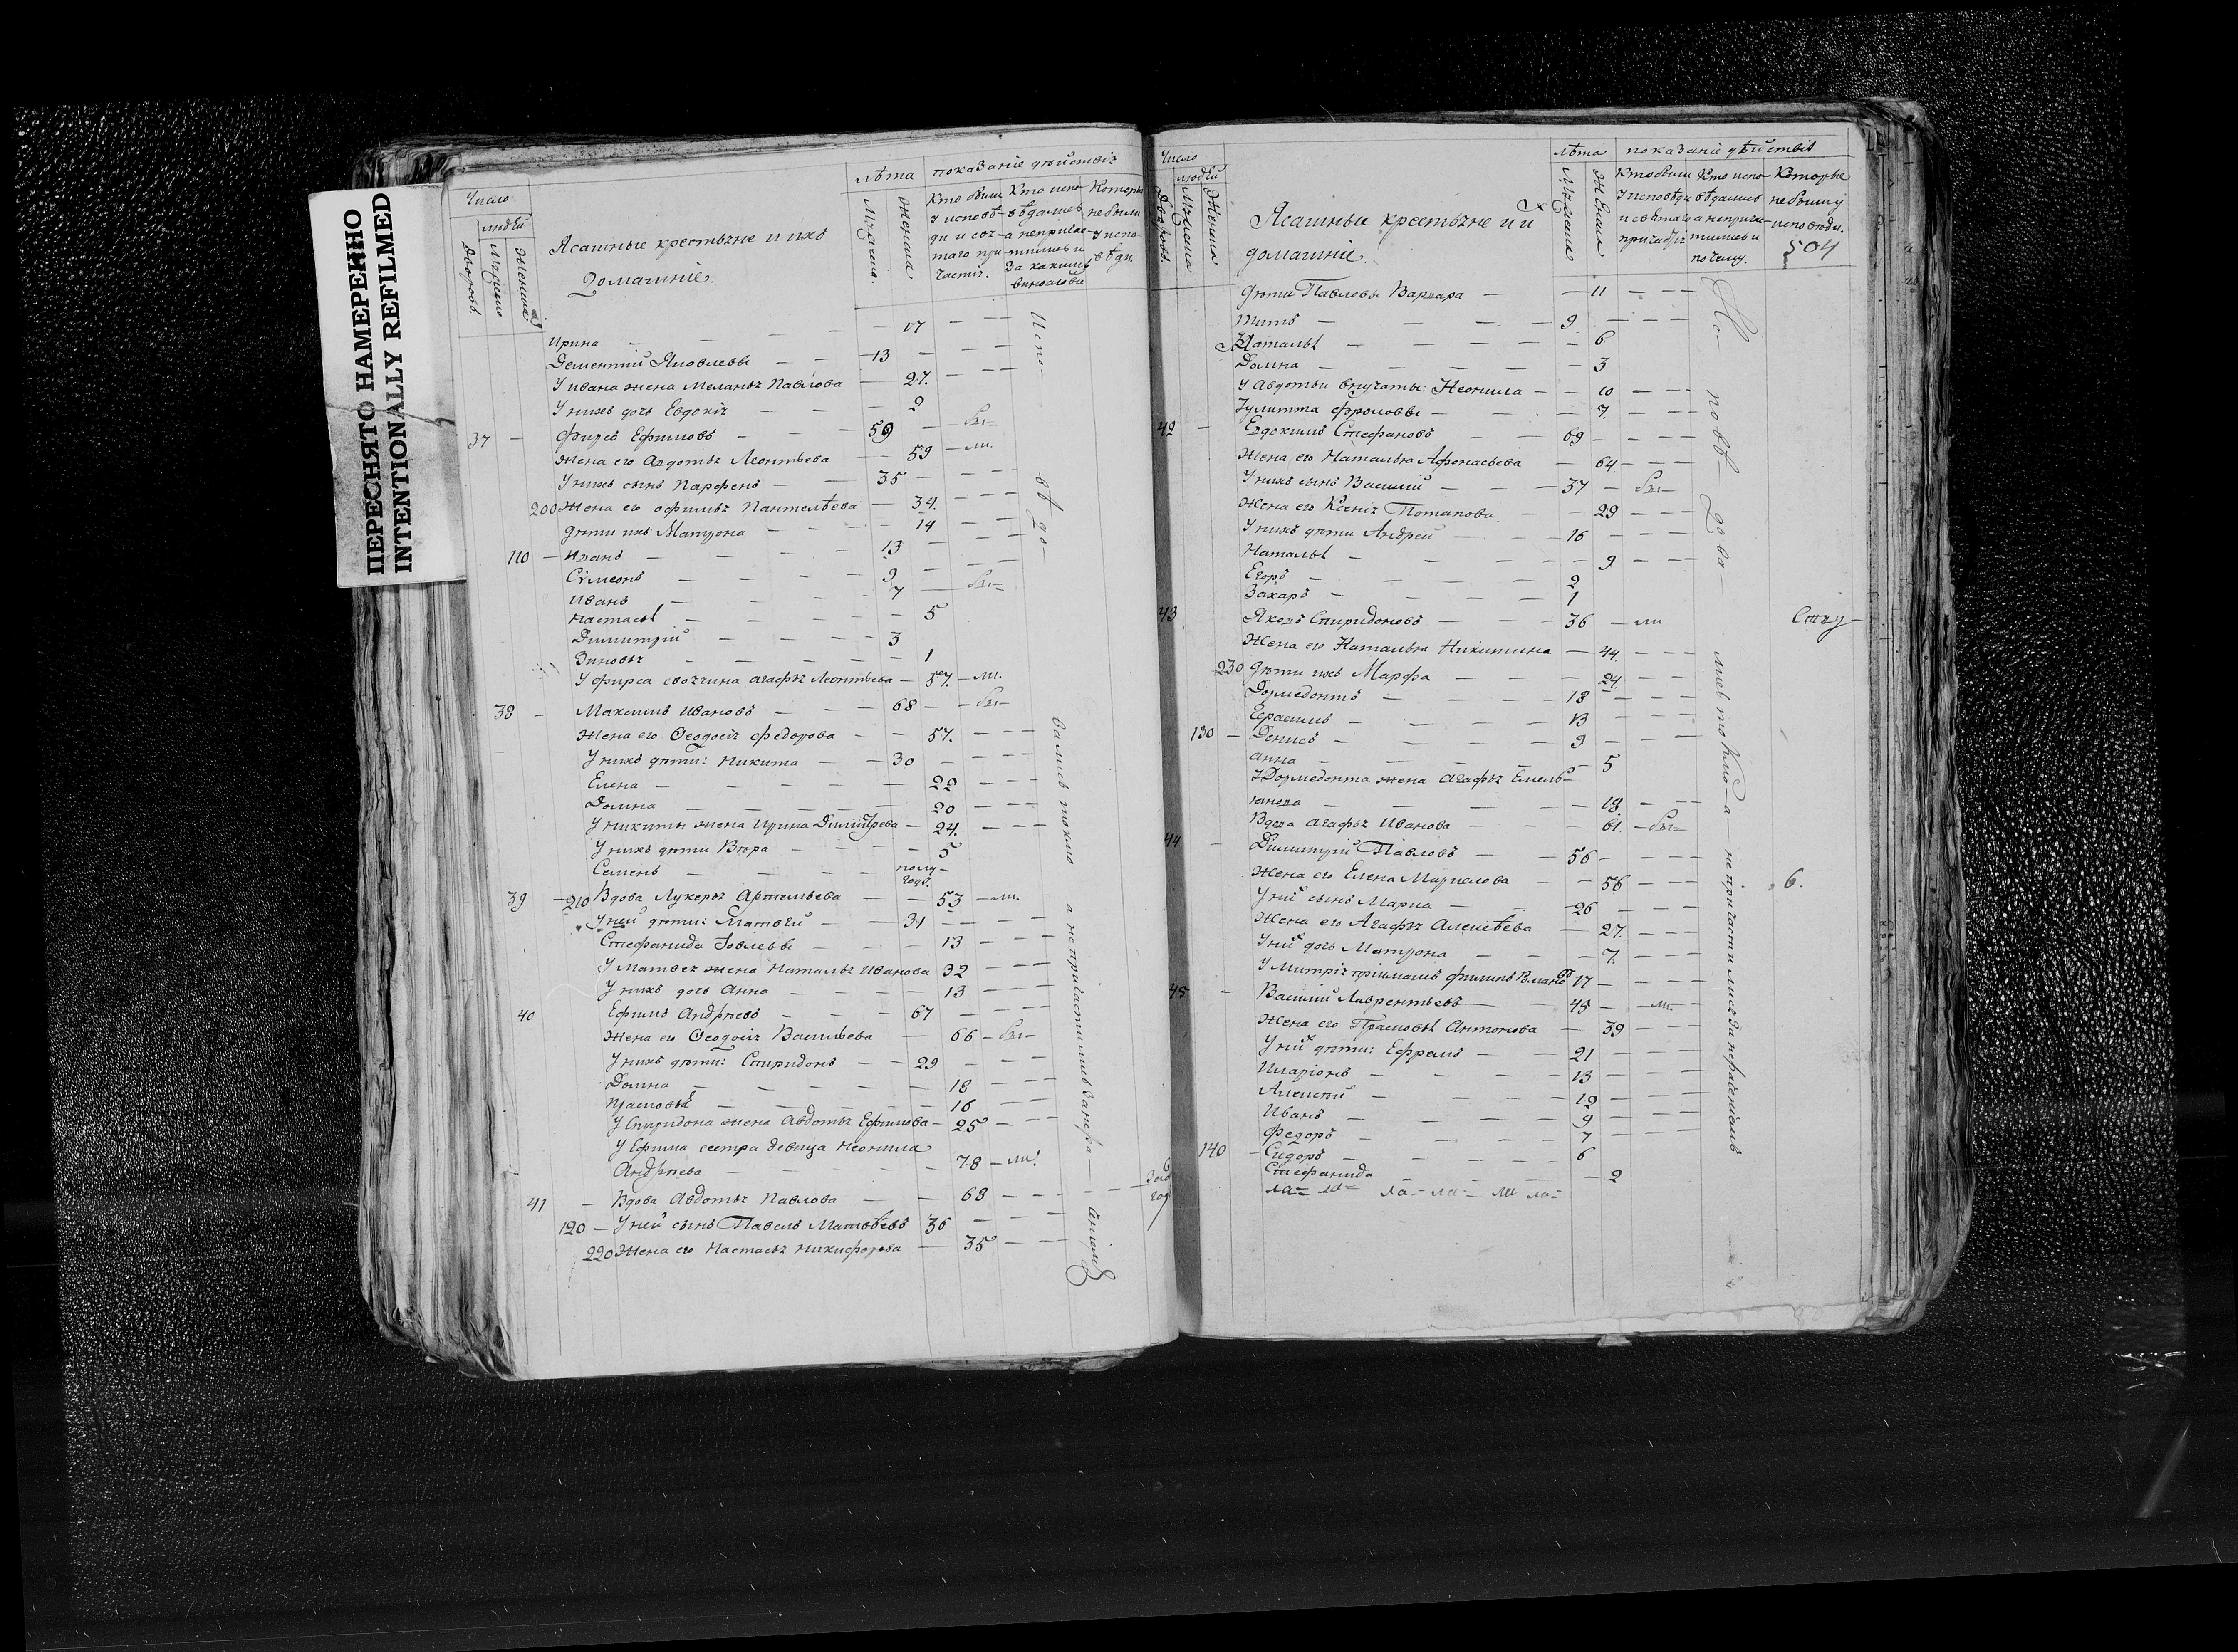 ПЕРЕСНЯТО НАМЕРЕННО
INTENTIONALLY REFILMED
Число
людей
Дворовъ.
Мужеска
Женска
Ясашные крестьяне и ихъ
Домашніе.
лѣта
Мужеска.
Женска.
показаніе дѣйствія
Кто были
у исповѣ-
ди и свя-
таго при-
частія.
Кто испо-
вѣдались
а непричас-
тились и
за какимъ
винословіе
Которы
не были
у испо-
вѣди.
Ирина — 17
Дементій Яковлевы — 13
У ивана жена Меланья Павлова — 27.
У нихъ дочь Евдокія — 9
37 — Фирсъ Ефимовъ — 59 — бы-
Жена его Авдотья Леонтьева — 59 — ли.
У нихъ сынъ Парфенъ — 35
200 Жена его офимья Пантелѣева — 34.
дѣти ихъ Матрона — 14
110 — Иванъ — 13
Сѵмеонъ — 9
Иванъ — 7 — бы-
Настасья — 5
Димитрій — 3
Зиновья — 1
У фирса своячина агафья Леонтьева — 57. — ли.
38 — Максимъ Ивановъ — 68 — бы-
Жена его Ѳеодосія федорова — 57.
У нихъ дѣти: Никита — 30
Елена — 22
Домна — 20
У никиты жена Ирина Димитрева — 24.
У нихъ дѣти Вѣра — 5
Семенъ — полу-
годъ.
39 — 210 Вдова Лукерья Артемьева — 53 — ли.
У ней дѣти: Матвѣй — 31
Стефанида Іовлевы — 13
У Матвея жена Наталья Иванова 32
У нихъ дочь Анна — 13
40 Ефимъ Андрѣевъ — 67
Жена его Ѳеодосія Васильева — 66 — бы-
У нихъ дѣти: Спиридонъ — 29
Домна — 18
Прасковья — 16
У Спиридона жена Авдотья Ефимова — 25
У Ефима сестра девица Неонила
Андрѣева — 78 — ли.
41 — Вдова Авдотья Павлова — 68
120 — У ней сынъ Павелъ Матвѣевъ 36
220 Жена его Настасья Никифорова — 35
Испо-
вѣ до-
вались токмо
а не причастились за нера-
Число
людей
Дворовъ.
Мужеска
Женска
Ясашныя крестьяне и ихъ
домашніе.
лѣта
Мужеска
Женска
показаніе дѣйствія
Кто были
у исповѣди
и святаго
причастія
Кто испо-
вѣдались
а неприча-
тились и
почему.
Которые
не были у
исповѣди.
504
дѣти Павловы Варвара — 11
Титъ — 9
Наталья — 6
Домна — 3
У Авдотьи внучаты: Неонила — 10
Іулитта фроловы — 7.
42 — Евдокимъ Стефановъ — 69
Жена его Наталья Афонасьева — 64.
У нихъ сынъ Василій — 37 — бы-
Жена его Ксенія Потапова — 29
У нихъ дѣти Андрей — 16
Наталья — 9
Егоръ — 2
Захаръ — 1
43 Яковъ Спиридоновъ — 36 — ли
Жена его Наталья Никитина — 44.
230 дѣти ихъ Марфа — 24.
Дормедонтъ — 18
Герасимъ — 13
130 — Денисъ — 9
анна — 5
У Дормедонта жена агафья Емель-
янова — 19.
Вдова агафья Иванова — 61. — бы-
44 — Димитрій Павловъ — 56
Жена его Елена Маркелова — 56
У ней сынъ Марка — 26
Жена его Агафья Алексѣева — 27.
У ней дочь Матрона — 7.
У Митрія пріимышъ филипъ Романовъ 17
45 — Василій Лаврентьевъ — 45 — ли.
Жена его Прасковья Антонова — 39
У ней дѣти: Ефремъ — 21
Иларіонъ — 13
Алексѣй — 12
Иванъ — 9
Федоръ — 7
140 — Сидоръ — 6
Стефанида — 2
Ис-
повѣ-
дова
лись токмо — а — не причастились за нерадѣніемъ
6.